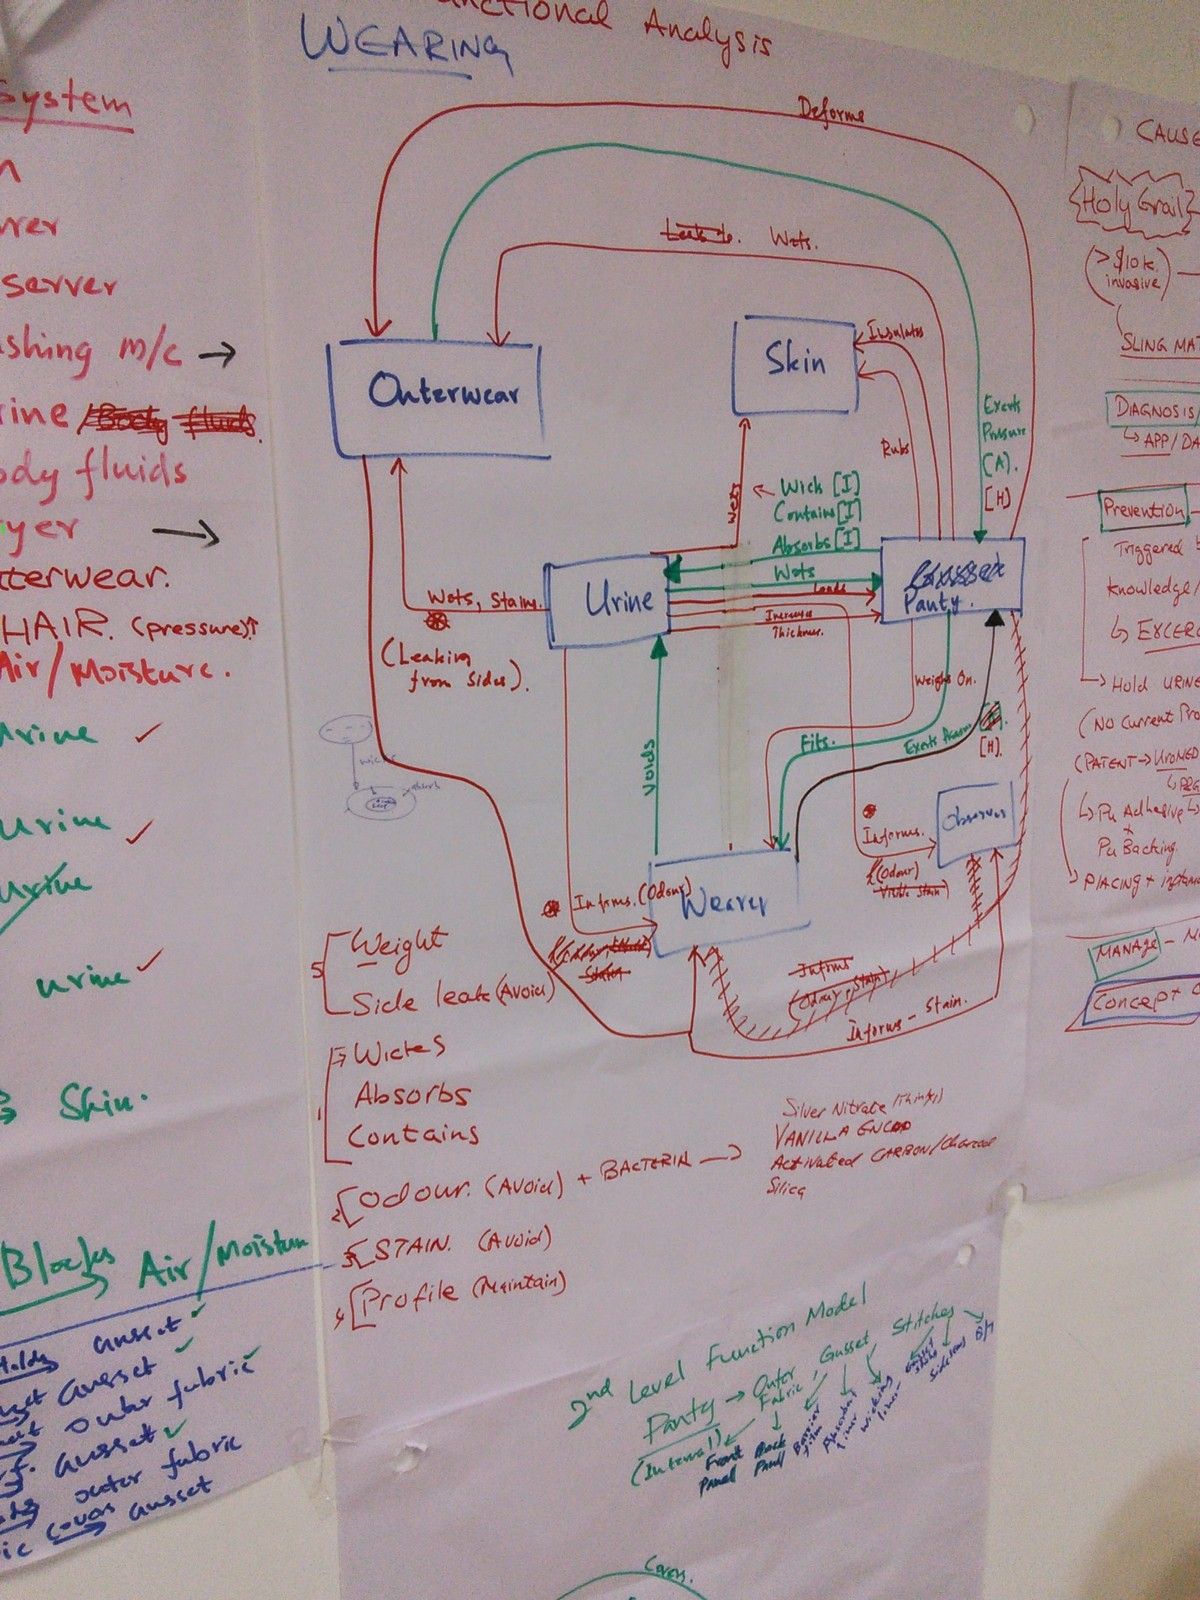 Functional Analysis
WEARING
System
server
shing m/c →
rine /Body fluids.
ody fluids
yer →
terwear.
HAIR. (pressure)↑
Air/Moisture.
urine ✓
urine ✓
urine
urine ✓
Skin.
Blocks Air/Moisture
Holds gusset ✓
gusset ✓
outer fabric ✓
gusset ✓
outer fabric
covers gusset
Deforms
Leaks to. Wets.
Outerwear
Skin
Insulates
Rubs
Exerts
Pressure
(A).
[H]
Wets
Wick [I]
Contains [I]
Absorbs [I]
Wets
Loads
Increases
Thickness.
Urine
Gusset
Panty.
Wets, Stains.
(Leaking
from Sides).
Voids
Weighs On.
Fits.
Exerts Pressure
[H].
wicks
absorbs
Observer
Informs.
(Odour)
Visible Stain)
Informs. (Odour)
Stain
Wearer
Informs
(Odour, Stain)
Informs - Stain.
5 Weight
Side leak (Avoid)
1 Wickes
Absorbs
Contains
2 Odour. (Avoid) + BACTERIA →
Silver Nitrate (Thinx)
VANILLA ENCAP
Activated CARBON/Charcoal
Silica
3 STAIN. (Avoid)
4 Profile (Maintain)
2nd Level Function Model
Panty → Outer Fabric, Gusset Stitches
(Internal)
Front Panel
Back Panel
Barrier film
Absorbent liner
Wicking liner
Gusset stitch
Side seams
Covers.
CAUSE
Holy Grail
(>$10k.
invasive)
SLING MAT
DIAGNOSIS/
↳ APP/DA
Prevention
Triggered
Knowledge/
↳ EXCERC
→ Hold URINE
(NO Current Pro
(PATENT → UroMED
↳ Pu Adhesive
+
Pu Backing
PLACING + 
MANAGE -
Concept